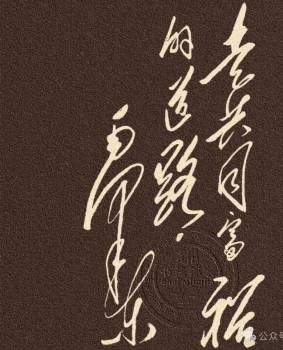 走共同富裕
的道路。
毛泽东
公众号